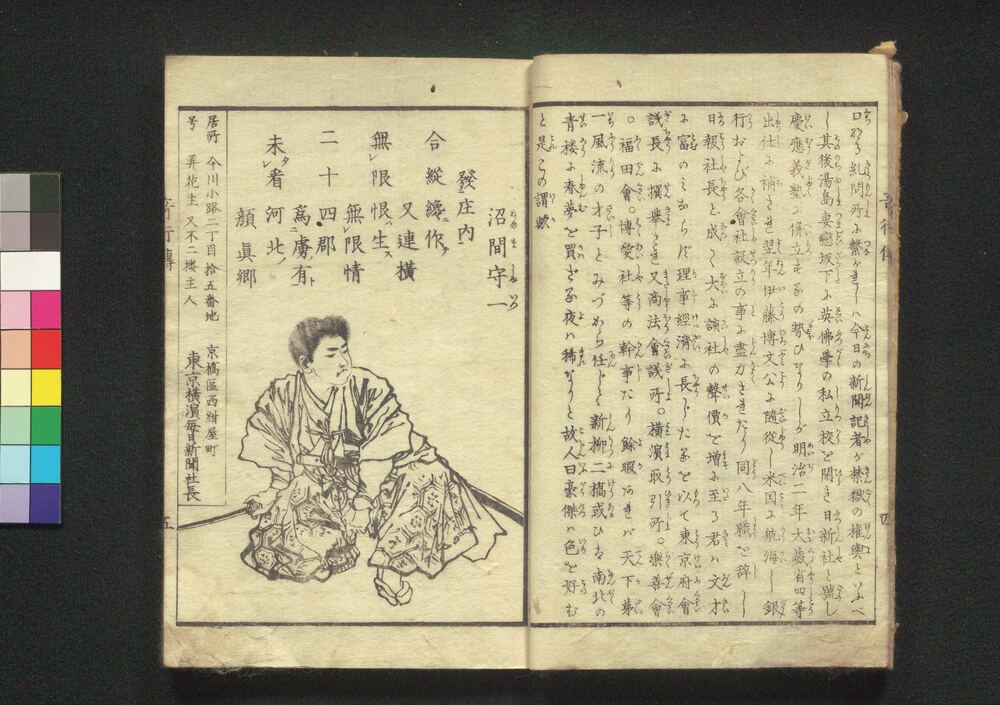 口ゆゑ糺問所に繋がれしハ今日の新聞記者が禁獄の権輿といふべ
し其後湯島妻戀坂下に英佛學の私立校を開き日新社と號し
慶應義塾に併立するの勢ひなりしが明治二年大蔵省四等
出仕に補せられ翌年伊藤博文公に随従し米国に航海し銀
行および各會社設立の事に盡力せられたり同八年職を辞し
日報社長と成して大に該社の聲價を増に至る君ハ文才
に富のミならず理事經濟に長じたるを以て東京府會
議長に撰擧せられ又商法會議所。横濱取引所。樂善會
。福田會。博愛社等の幹事たり餘暇あれバ天下第
一風流の才子とみづから任じて新柳二橋或ひは南北の
青楼に春夢を買ざる夜ハ稀なりと故人曰豪傑ハ色を好む
と是この謂歟
四
沼間守一
ぬま しゅいち
發庄内
合縱纔作又連横
無限恨生無限情
二十四郡為虜有
未看河北顔眞郷
居所 今川小路二丁目拾五番地
号 弄花生 又不二樓主人
京橋區西紺屋町
東京横濱毎日新聞社長
五